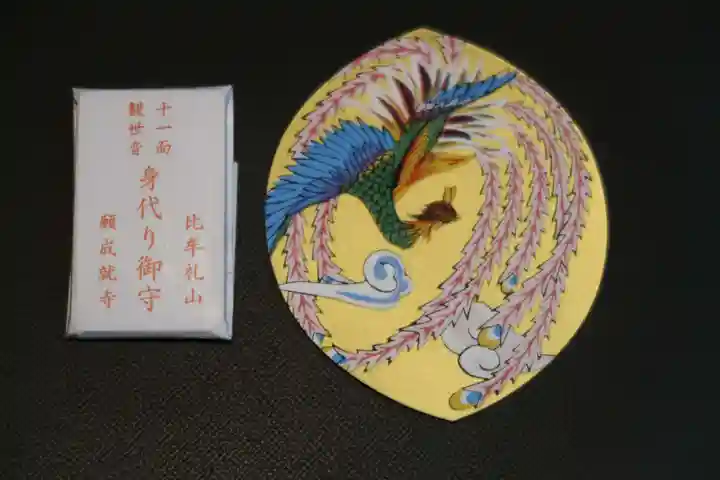 十一面
観世音
身代り御守
比牟礼山
願成就寺